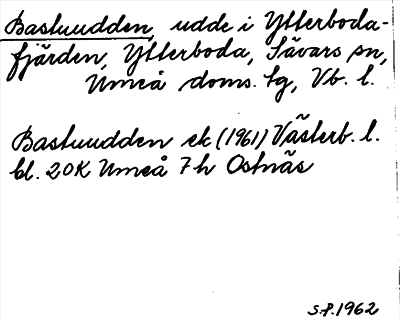 Bastuudden, udde i Ytterboda-
fjärden, Ytterboda, Sävars sn,
Umeå doms. tg, Vb. l.
Bastuudden ek (1961) Västerb. l.
bl. 20K Umeå 7h Ostnäs
S.P. 1962